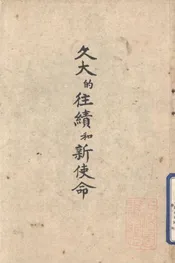 久大的往績和新使命